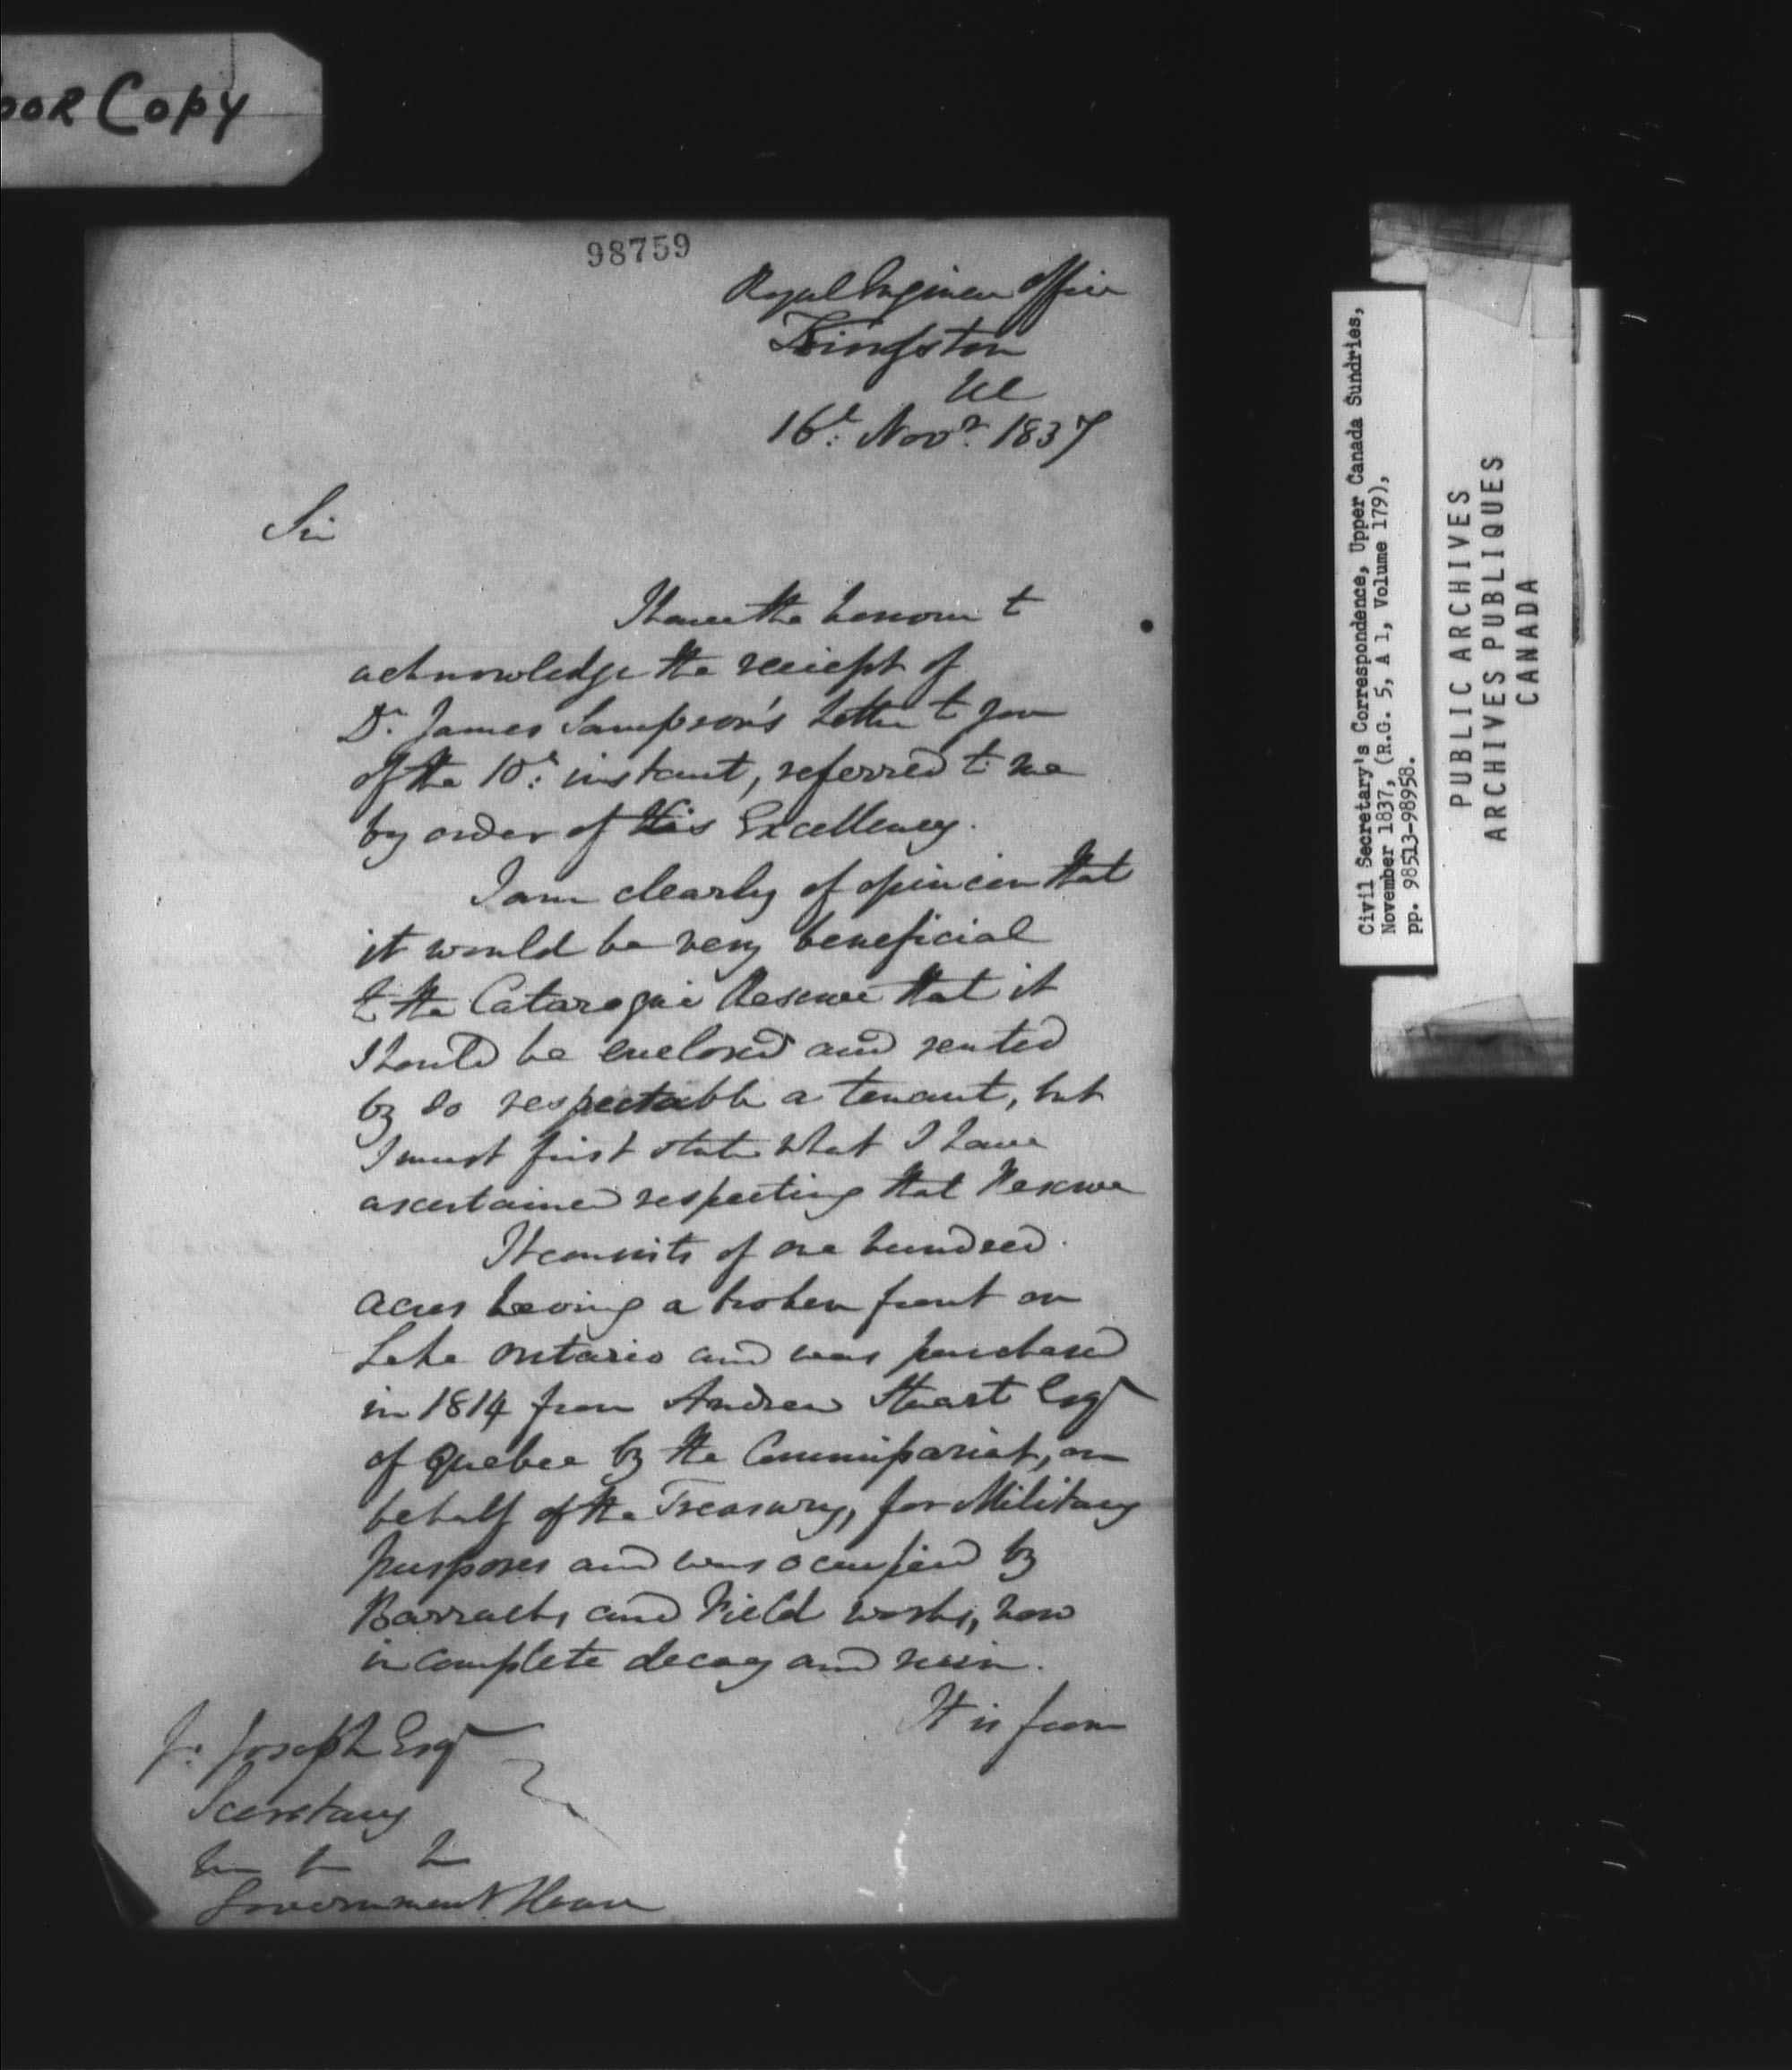 OOR COPY
98759
Royal Engineer Office
Kingston
UC
16t. Novr. 1837
Sir
I have the honour to
acknowledge the reciept of
Dr. James Sampson's Letter to you
of the 10t. instant, referred to me
by order of His Excellency.
I am clearly of opinion that
it would be very beneficial
to the Cataraqui Reserve that it
should be enclosed and rented
by so respectable a tenant, but
I must first state what I have
ascertained respecting that Reserve
It consists of one hundred
acres having a broken front on
Lake Ontario and was purchased
in 1814 from Andrew Stuart Esqr
of Quebec by the Commissariat, on
behalf of the Treasury, for Military
purposes and was occupied by
Barracks and Field works, now
in complete decay and ruin.
It is from
J. Joseph Esqr
Secretary
Government House
Civil Secretary's Correspondence, Upper Canada Sundries,
November 1837, (R.G. 5, A 1, Volume 179),
pp. 98513-98958.
PUBLIC ARCHIVES
ARCHIVES PUBLIQUES
CANADA